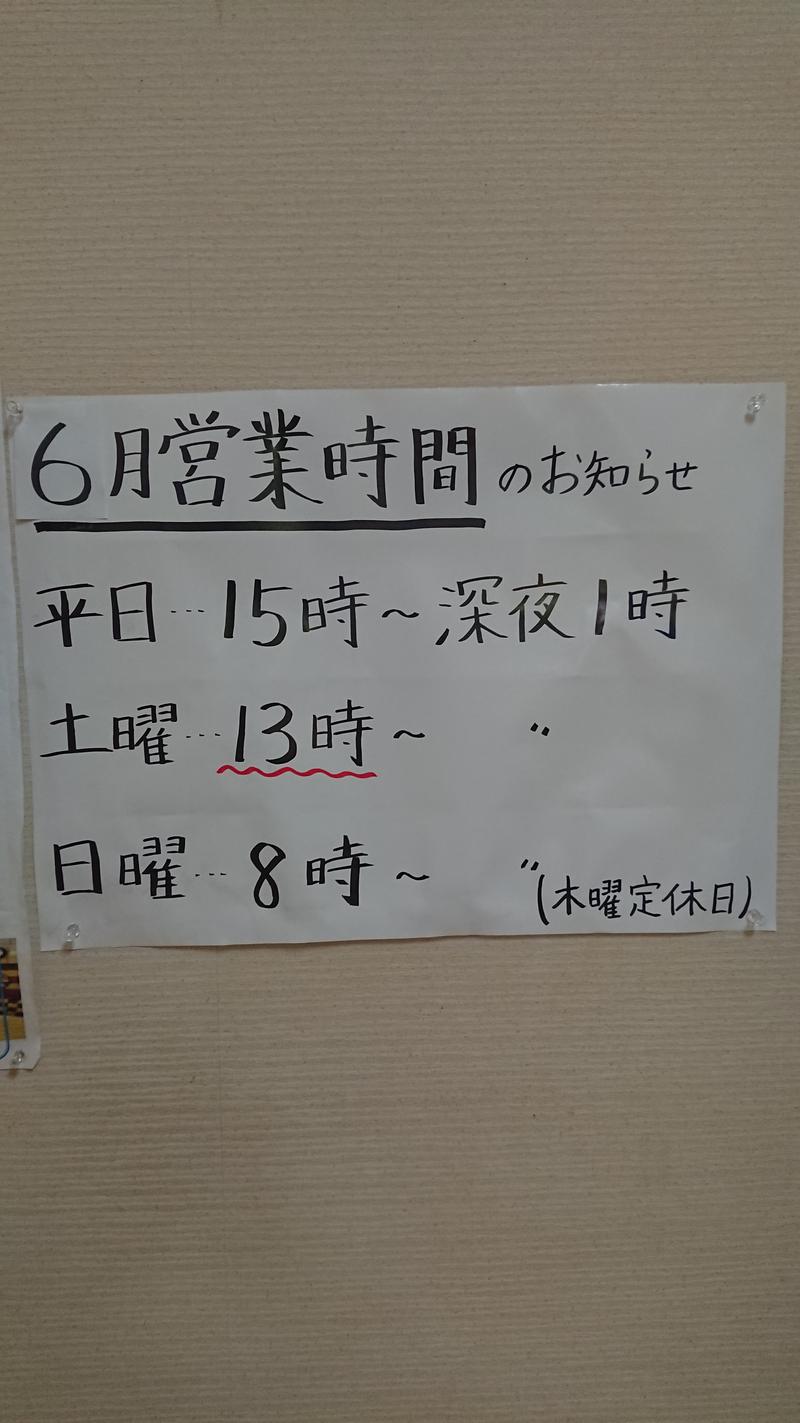 6月営業時間のお知らせ
平日…15時~深夜1時
土曜…13時~ 〃
日曜…8時~ 〃
(木曜定休日)